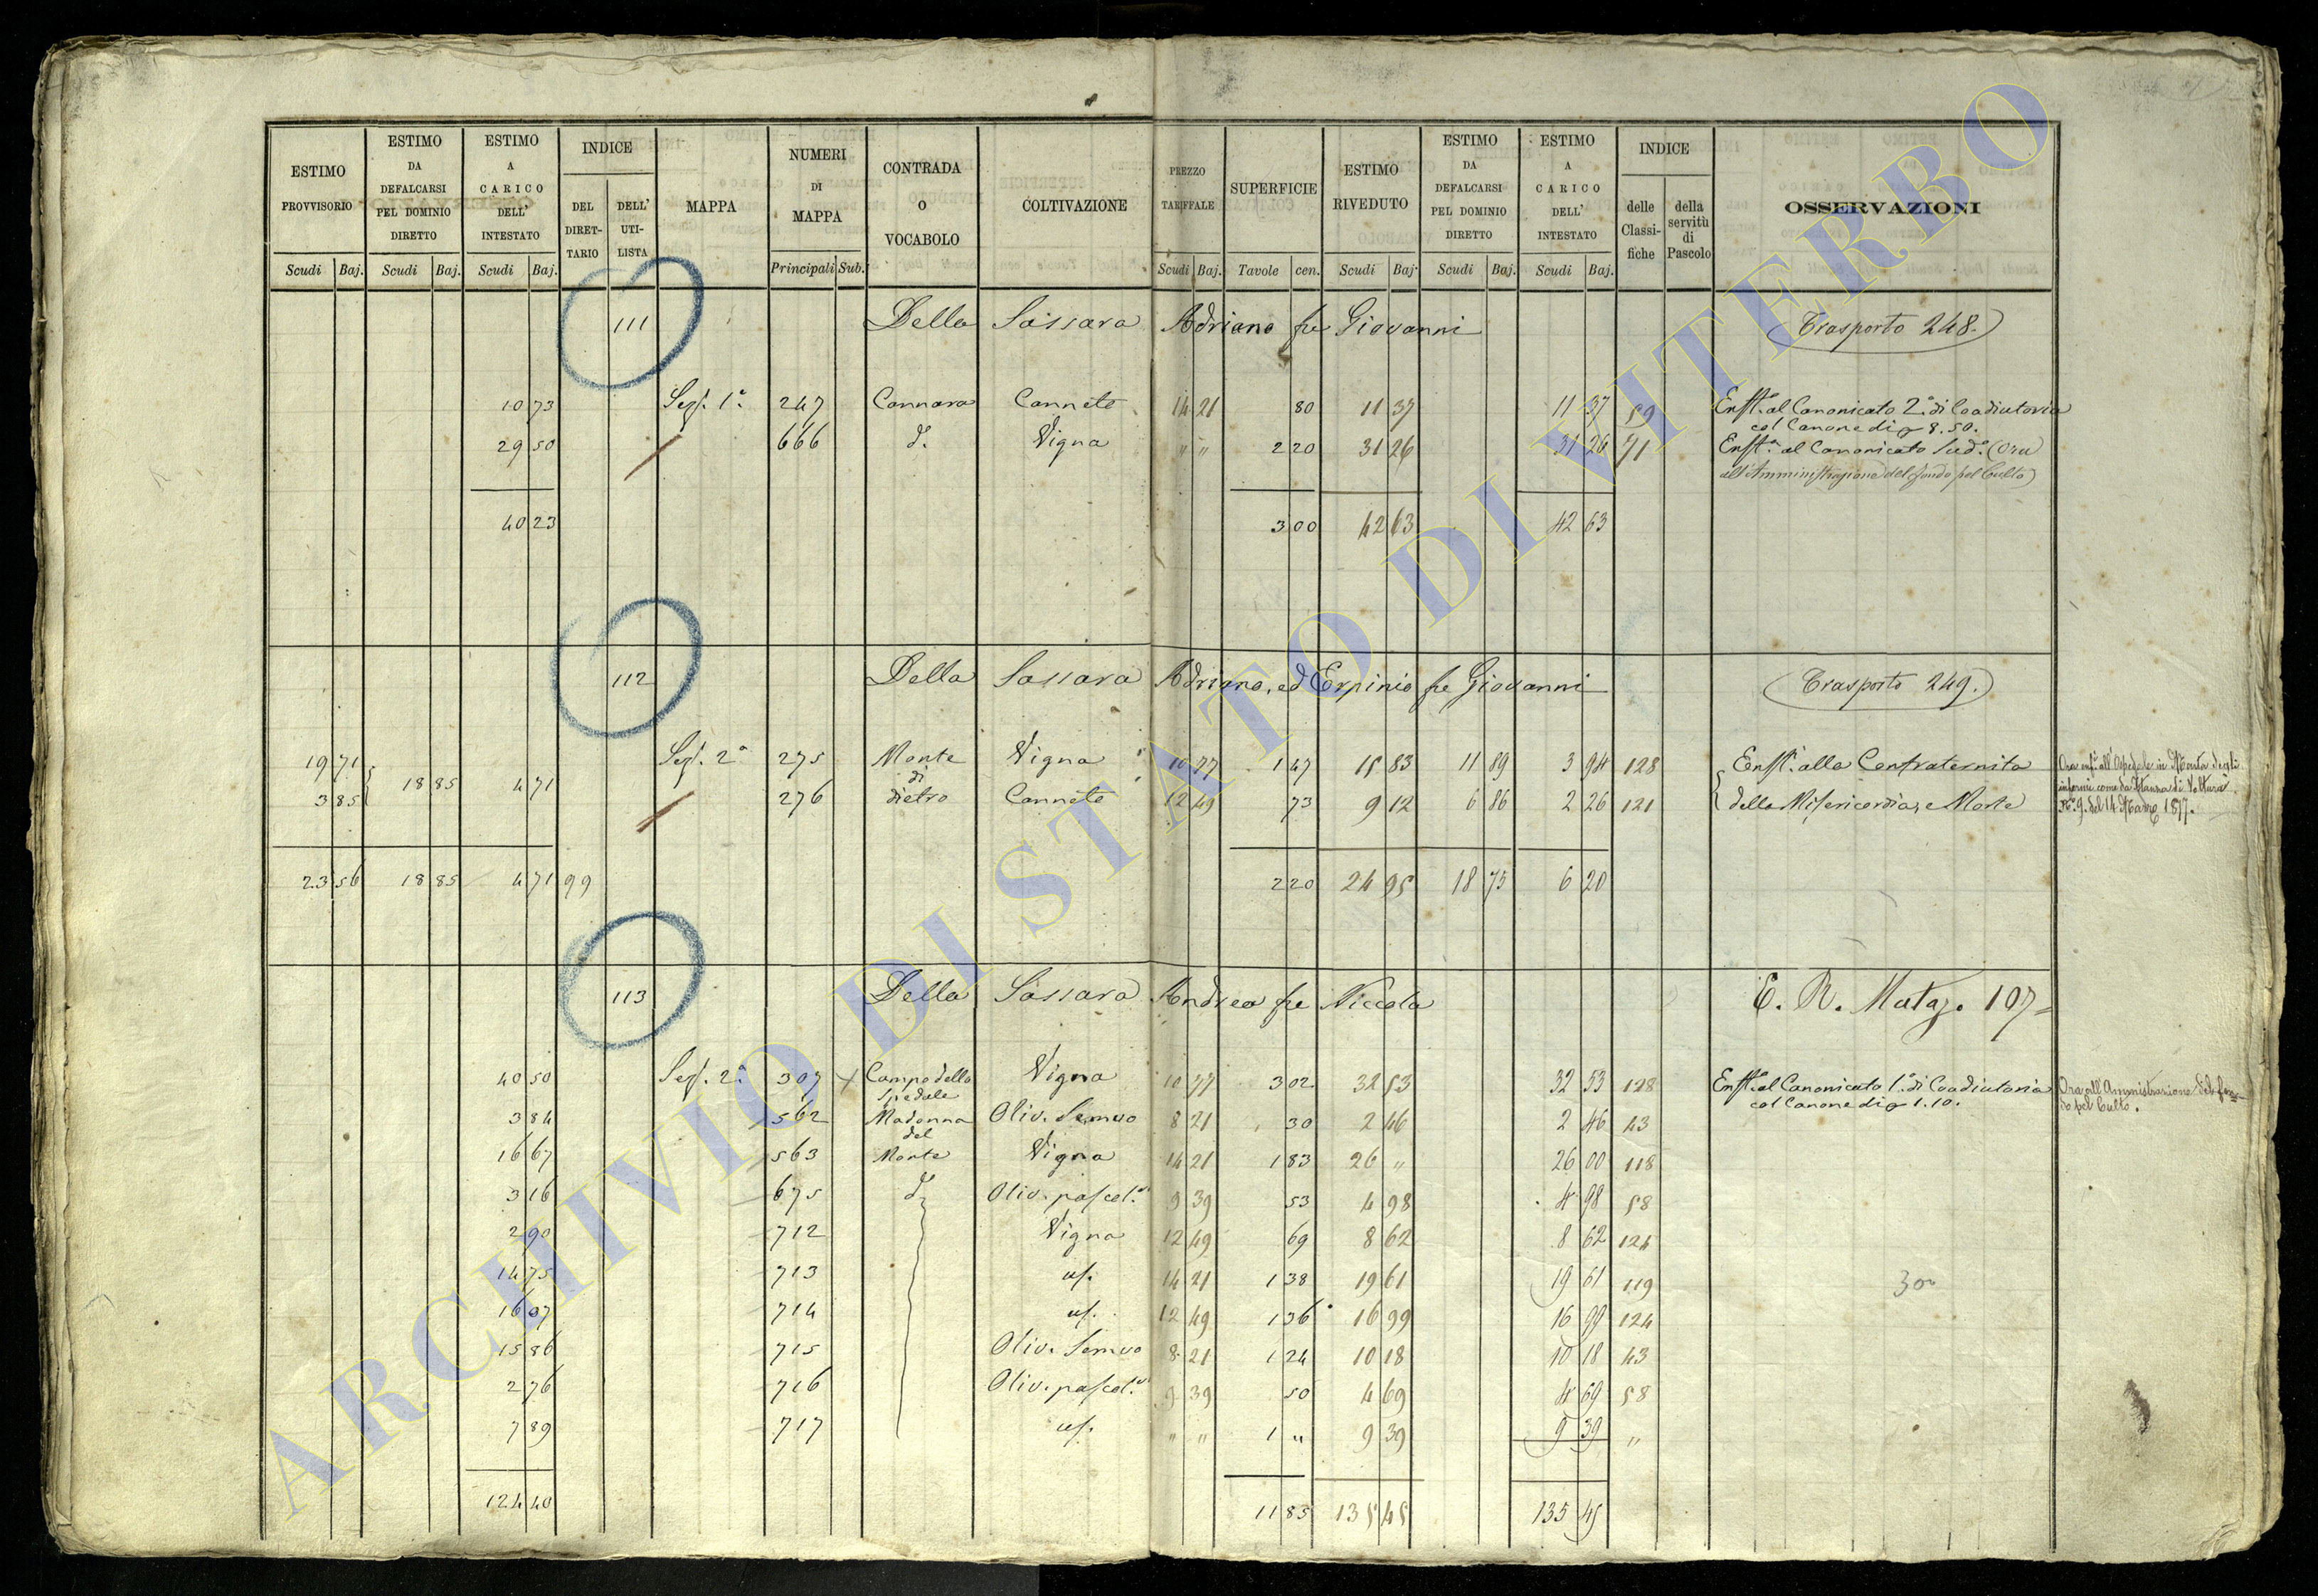 ESTIMO PROVVISORIO Scudi Baj.
ESTIMO DA DEFALCARSI PEL DOMINIO DIRETTO Scudi Baj.
ESTIMO A CARICO DELL' INTESTATO Scudi Baj.
INDICE DEL DIRETTARIO DELL' UTILISTA
MAPPA
NUMERI DI MAPPA Principali Sub.
CONTRADA O VOCABOLO
COLTIVAZIONE
PREZZO TARIFFALE Scudi Baj.
SUPERFICIE Tavole cen.
ESTIMO RIVEDUTO Scudi Baj.
ESTIMO DA DEFALCARSI PEL DOMINIO DIRETTO Scudi Baj.
ESTIMO A CARICO DELL' INTESTATO Scudi Baj.
INDICE delle Classifiche della servitù di Pascolo
OSSERVAZIONI
111 Della Sassara Adriano fu Giovanni (Trasporto 248.)
10 73 Sez. 1a 247 Cannara Canneto 14 21 80 11 37 11 37 59 Enfta. al Canonicato 2o. di Coadiutoria
col Canone di 8.50.
29 50 666 do. Vigna " " 2 20 31 26 31 26 71 Enfta. al Canonicato Sudo. (Ora
all'Amministrazione del fondo pel Culto)
40 23 3 00 42 63 42 63
112 Della Sassara Adriano, ed Erpinio fu Giovanni (Trasporto 249.)
19 71 18 85 4 71 Sez. 2a 275 Monte Vigna 10 77 1 47 15 83 11 89 3 94 128 Enfta. alla Confraternita
di
3 85 276 dietro Canneto 12 49 73 9 12 6 86 2 26 121 della Misericordia, e Morte
Ora enfta. all'Ospedale in Monta degli
infermi come da Istanza di Voltura
No. 9. del 14 Marzo 1877.
23 56 18 85 4 71 99 2 20 24 95 18 75 6 20
113 Della Sassara Andrea fu Niccola E. R. Mutaz. 107
40 50 Sez. 2a. 307 Campo dello Spedale Vigna 10 77 3 02 32 53 32 53 128 Enfta. al Canonicato 1o. di Coadiutoria
col Canone di 1.10.
Ora all'Amministrazione del fondo
pel Culto.
3 84 562 Madonna Oliv. Semvo 8 21 30 2 46 2 46 43
del
16 67 563 Monte Vigna 14 21 1 83 26 " 26 00 118
3 16 675 do. Oliv. pascol.o 9 39 53 4 98 4 98 58
2 90 712 Vigna 12 49 69 8 62 8 62 124
14 75 713 id. 14 21 1 38 19 61 19 61 119
16 07 714 id. 12 49 1 36 16 99 16 99 124
15 86 715 Oliv. Semvo 8 21 1 24 10 18 10 18 43
2 76 716 Oliv. pascol.o 9 39 50 4 69 4 69 58
7 89 717 id. " " 1 " 9 39 9 39 "
300
124 40 11 85 135 45 135 45
ARCHIVIO DI STATO DI VITERBO